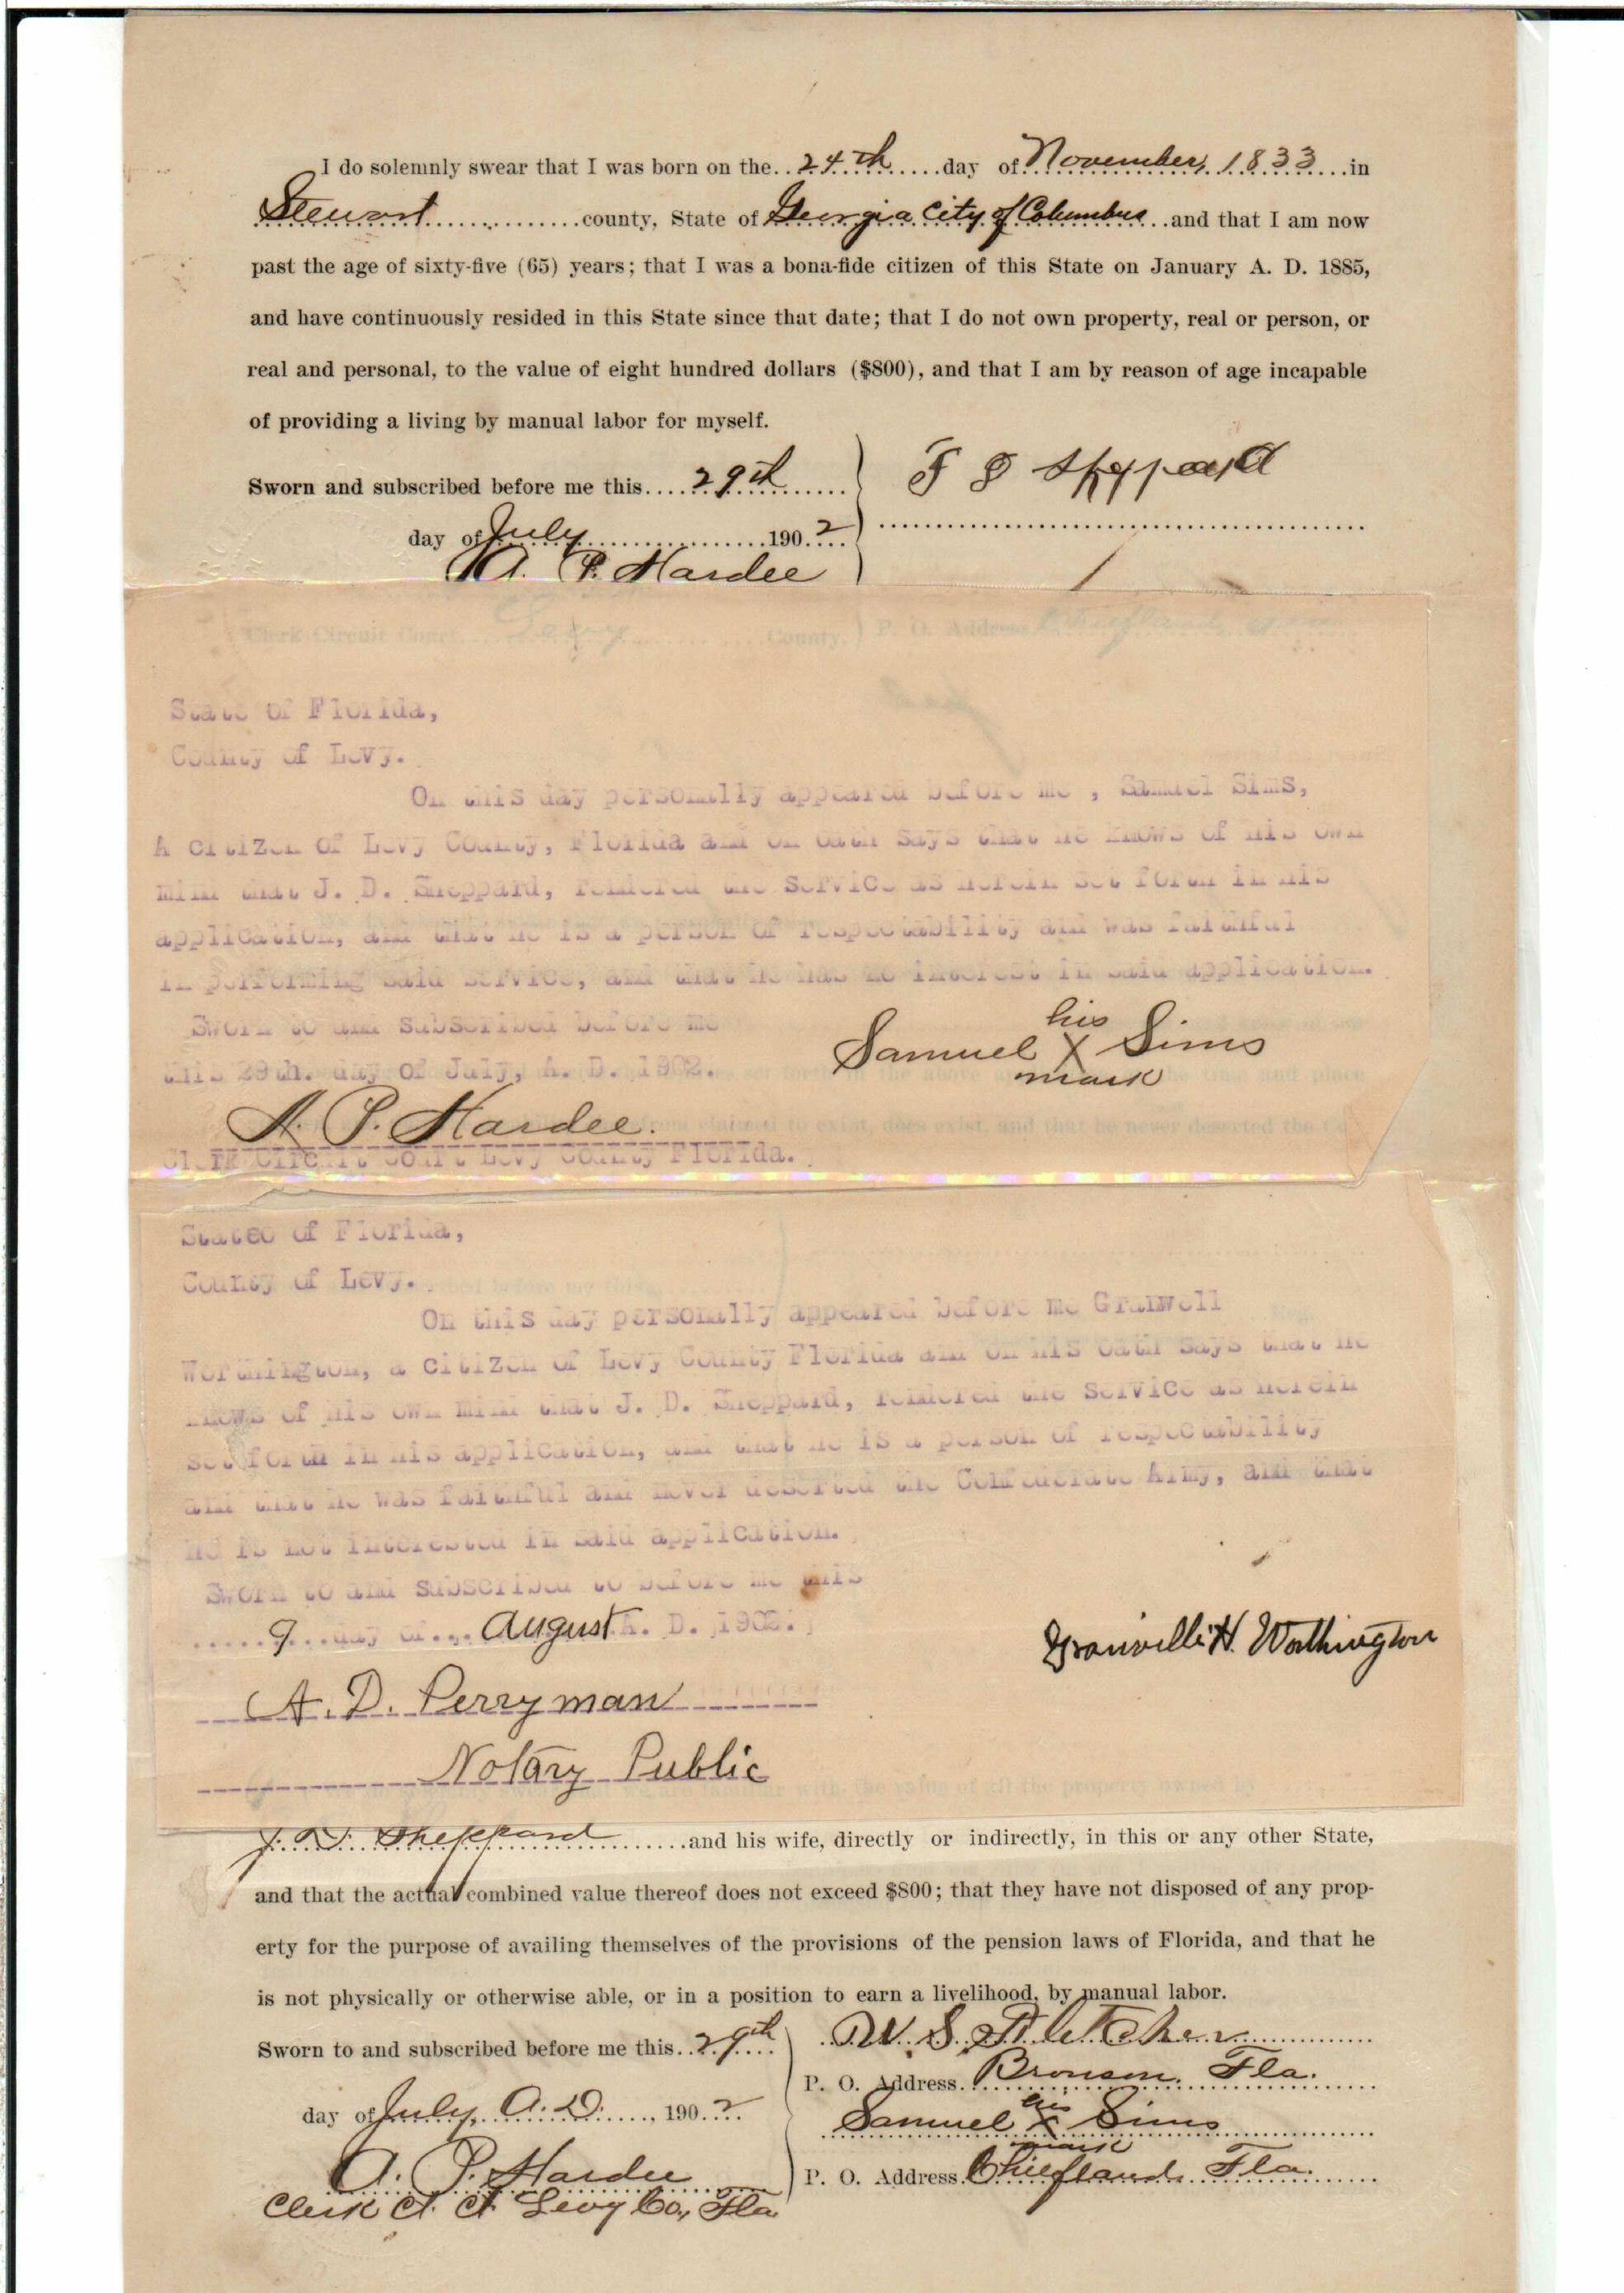 I do solemnly swear that I was born on the..24th.....day of November, 1833...in
Stewart..............county, State of Georgia City of Columbus..and that I am now
past the age of sixty-five (65) years; that I was a bona-fide citizen of this State on January A. D. 1885,
and have continuously resided in this State since that date; that I do not own property, real or person, or
real and personal, to the value of eight hundred dollars ($800), and that I am by reason of age incapable
of providing a living by manual labor for myself.
Sworn and subscribed before me this....29th......
day of July..................1902....
A. P. Hardee
Clerk Circuit Court....Levy..........County.) P. O. Address
State of Florida,
County of Levy.
On this day personally appeared before me , Samuel Sims,
A citizen of Levy County, Florida and on oath says that he knows of his own
mind that J. D. Sheppard, rendered the service as herein set forth in his
application, and that he is a person of respectability and was faithful
in performing said service, and that he has no interest in said application.
Sworn to and subscribed before me
this 29th. day of July, A. D. 1902.
Samuel his X mark Sims
A. P. Hardee.
claimed to exist, does exist, and that he never deserted the
Clerk Circuit Court Levy County Florida.
Stateo of Florida,
County of Levy.
On this day personally appeared before me Granwell
Worthington, a citizen of Levy County Florida and on his oath says that he
knows of his own mind that J. D. Sheppard, rendered the service as herein
set forth in his application, and that he is a person of respectability
and that he was faithful and never deserted the Confederate Army, and that
he is not interested in said application.
Sworn to and subscribed to before me this
......9...day of... August A. D. 1902.
Granville H. Worthington
A. D. Perryman
Notary Public
with, the value of all the property owned by
J. D. Sheppard.......and his wife, directly or indirectly, in this or any other State,
and that the actual combined value thereof does not exceed $800; that they have not disposed of any prop-
erty for the purpose of availing themselves of the provisions of the pension laws of Florida, and that he
is not physically or otherwise able, or in a position to earn a livelihood, by manual labor.
Sworn to and subscribed before me this..29th....
W. S. Fletcher
P. O. Address. Bronson, Fla.
day of July, A. D......, 190.2..
Samuel his X mark Sims
A. P. Hardee
P. O. Address. Chiefland, Fla.
Clerk Ct. Ct. Levy Co., Fla